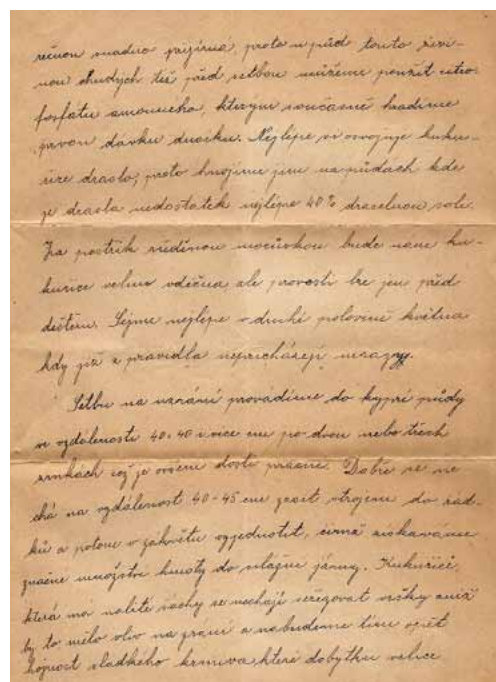 řinou snadno přijímá, proto u půd touto živi-
nou chudých též před setbou můžeme použít citro-
fosfátu amonného, kterým současně hradíme
prvou dávku dusíku. Nejlépe si osvojuje kuku-
řice draslo, proto hnojíme jím na půdách kde
je drasla nedostatek nejlépe 40% draselnou solí.
Za postřik zředěnou močůvkou bude nám ku-
kuřice velmi vděčna, ale provésti lze jen před
deštěm. Sejme nejlépe v druhé polovině května
kdy již z pravidla nepřicházejí mrazy.
Setbu na uzrání provádíme do kypré půdy
ve vzdálenosti 40-40 i více cm po dvou nebo třech
zrnkách což je ovšem dosti pracné. Dobře se ne
chá na vzdálenost 40-45 cm zasít strojem do řád-
ků a potom v zákrětu vyjednotit, čímž získáváme
značné množství hmoty do silážní jámy. Kukuřici,
která má nalité šachy se nechají seřezovat vršky aniž
by to mělo vliv na zrání a nabudeme tím opět
hojnost sladkého krmiva, které dobytku velice